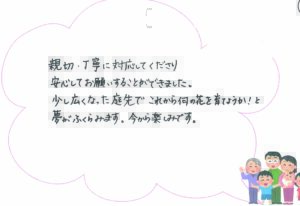 親切・丁寧に対応してくださり
安心してお願いすることができました。
少し広くなった庭先で これから何の花を育てようか!と
夢がふくらみます。今から楽しみです。